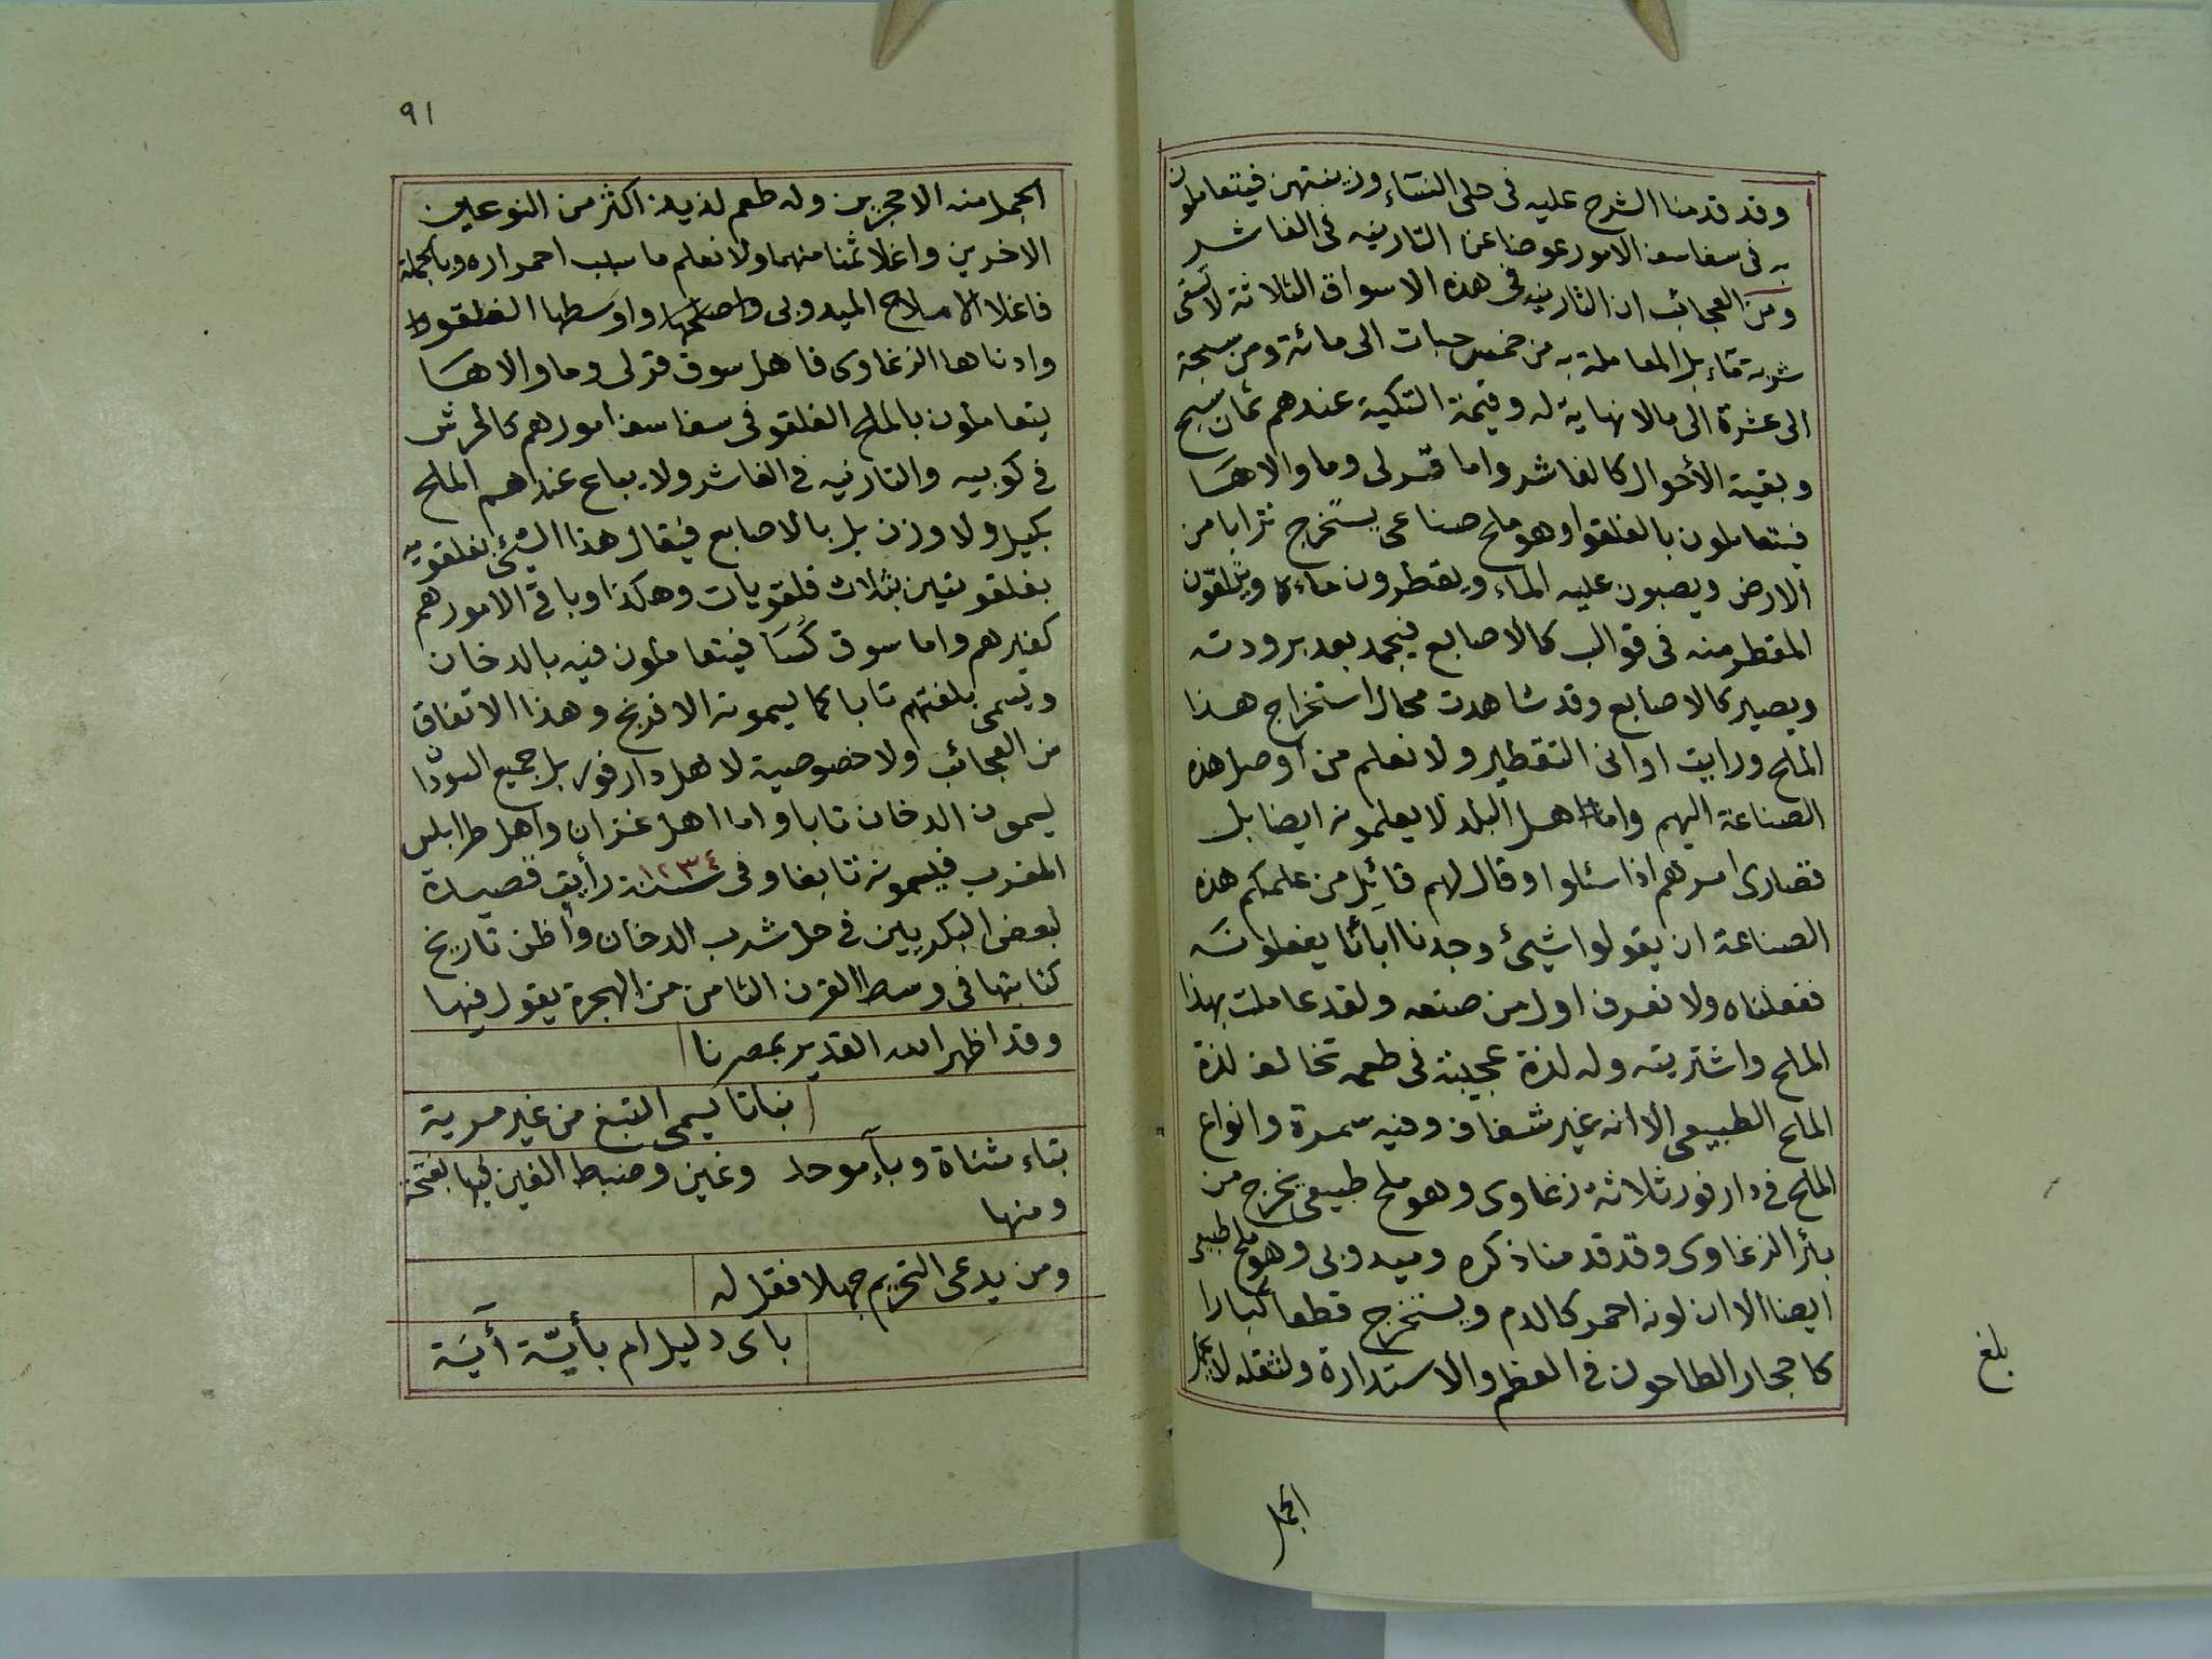 وقد قدمنا الشرح عليه فى حلى النسَاء وزينتهن فيتعاملون
به فى سفاسف الامور عوضا عن التارنيه فى الفاشر
ومن العجائب ان التارنيه فى هذه الاسواق الثلاثة لا تسقى
شربة مَاء بل المعاملة به من خمس حبات الى مائة ومن سبحة
الى عشرة الى مالا نهاية له وقيمة التكية عندهم ثمان سبح
وبقية الأحوال كالفاشر واما قرلى وما والاهَا
فيتعاملون بالفلقو وهو ملح صناعى يستخرج ترابا من
الارض ويصبون عليه الماء ويقطرون ماءه ويتلقون
المقطر منه فى قوالب كالاصابع فيجمد بعد برودته
ويصير كالاصابع وقد شاهدت محال استخراج هذا
الملح ورايت اوانى التقطير ولا نعلم من اوصل هذه
الصناعة اليهم واما اهل البلد لا يعلمونه ايضا بل
قصارى امرهم اذا سئلوا وقال لهم قائِل من علمكم هذه
الصناعة ان يقولوا شيئ وجدنا ابائنا يفعلونَه
ففعلناه ولا نعرف اول من صنعه ولقد عاملت بهذا
الملح واشتريته وله لذة عجيبة فى طعمه تخالف لذة
الملح الطبيعى الا انه غير شفاف وفيه سمرة وانواع
الملح فى دارفور ثلاثة زغاوى وهو ملح طبيعى يخرج من
بأر الزغاوى وقد قدمنا ذكره وميدوبى وهو ملح طبيعى
ايضا الا ان لونه احمر كالدم ويستخرج قطعا كبارا
كاحجار الطاحون فى العظم والاستدارة ولثقله لا يحمل
الجمل
بلغ
٩١
الجمل منه الا حجرين وله طعم لذيذ اكثر من النوعين
الاخرين واغلا ثمنا منهما ولا نعلم ما سبب احمراره وبالجملة
فاغلا الاملاح الميدوبى واصلحها واوسَطها الفلقو
وادناها الزغاوى فاهل سوق قرلى وما والاهَا
يتعاملون بالملح الفلقو فى سفاسف امورهم كالحرش
فى كوبيه والتارنيه فى الفاشر ولا يباع عندهم الملح
بكيل ولا وزن بل بالاصابع فيقال هذا الشئ بفلقويه
بفلقويتين بثلاث فلقويات وهكذا وباقى الامور هم
كغيرهم واما سوق كُسَا فيتعاملون فيه بالدخان
ويسمى بلغتهم تابا كما يسمونه الافرنج وهذا الاتفاق
من العجائب ولا خصوصية لاهل دارفور بل جميع السودان
يسمون الدخان تابا واما اهل غزان واهل طرابلس
المغرب فيسمونه تابغا وفى سنة ١٢٣٤ رأيت قصيدة
لبعض البكريين فى حل شرب الدخان واظن تاريخ
كتابتها فى وسط القرن الثامن من الهجرة يقول فيها
وقد اظهر الله القدير بمصرنا
نباتا يسمى التبغ من غير مرية
بتاء مثناة وبآء موحد وغين وضبط الغين فيها بفتحة
ومنها
ومن يدعى التحريم جهلا فقل له
باى دليل ام بأيّة آيَة